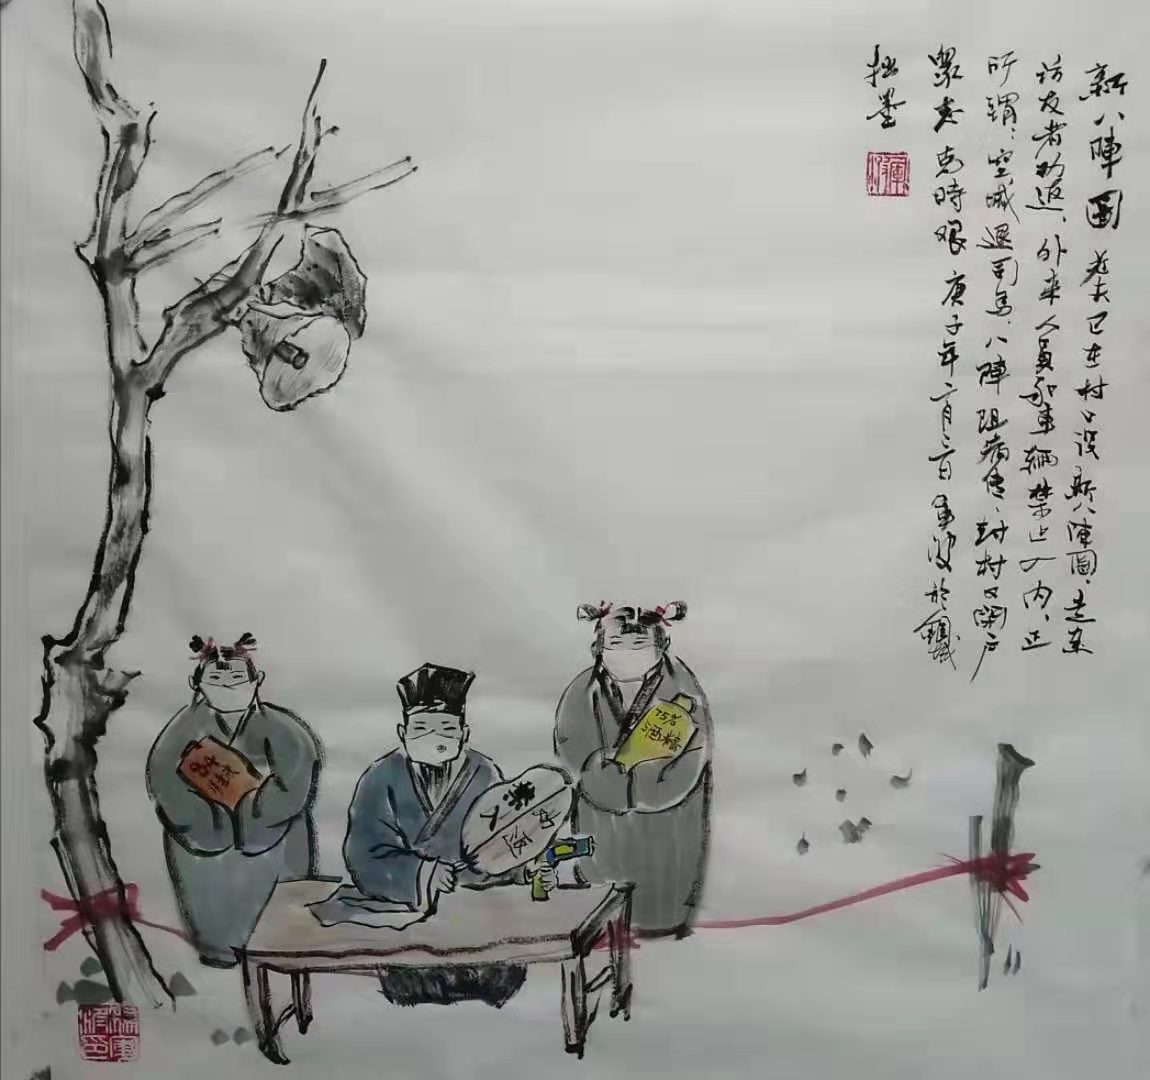 新八陣圖 老夫已在村口设新八陣圖，走亲
访友者劝返，外来人员和車辆禁止入内，正
所謂：空城退司馬，八陣阻病传，封村又闭户
衆志克時艰 庚子年二月二日 於
拙墨
84
75%
酒精
劝返
禁入